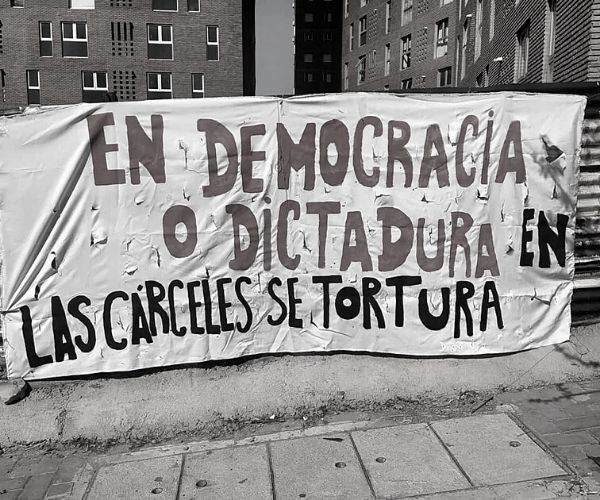 EN DEMOCRACIA
O DICTADURA EN
LAS CÁRCELES SE TORTURA